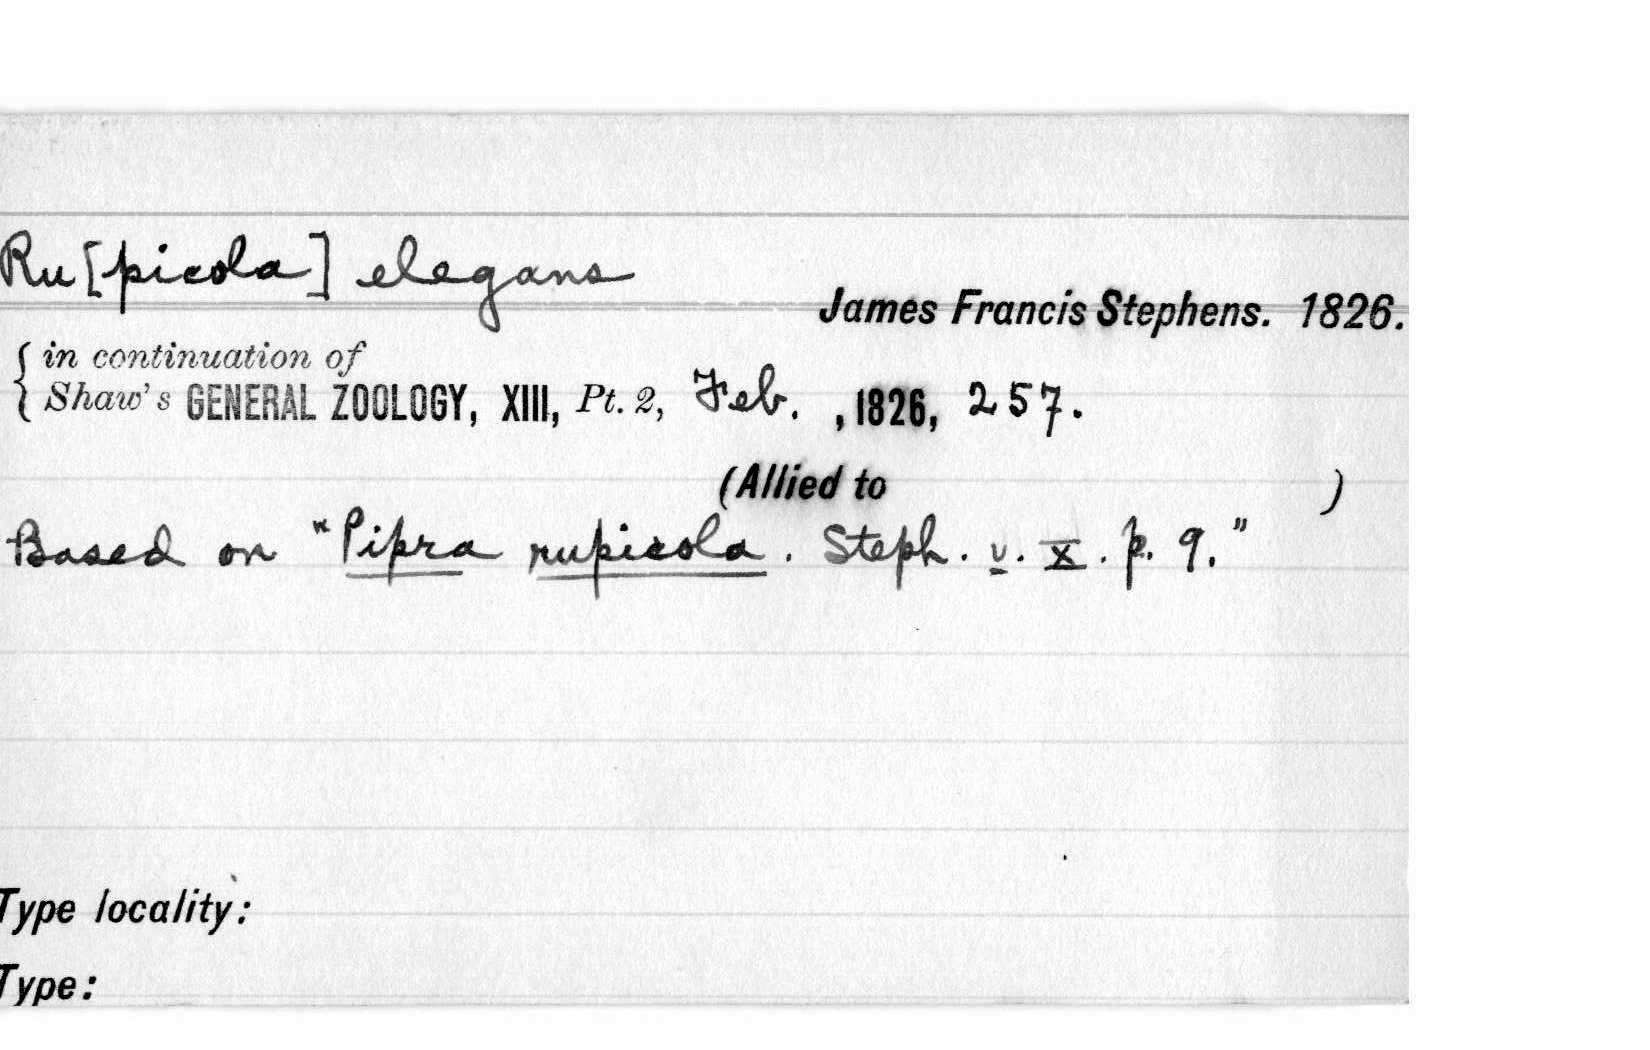 Ru[picola] elegans
James Francis Stephens. 1826.
{ in continuation of
Shaw's GENERAL ZOOLOGY, XIII, Pt. 2, Feb. , 1826, 257.
(Allied to )
Based on "Pipra rupicola. Steph. v. X. p. 9."
Type locality:
Type: